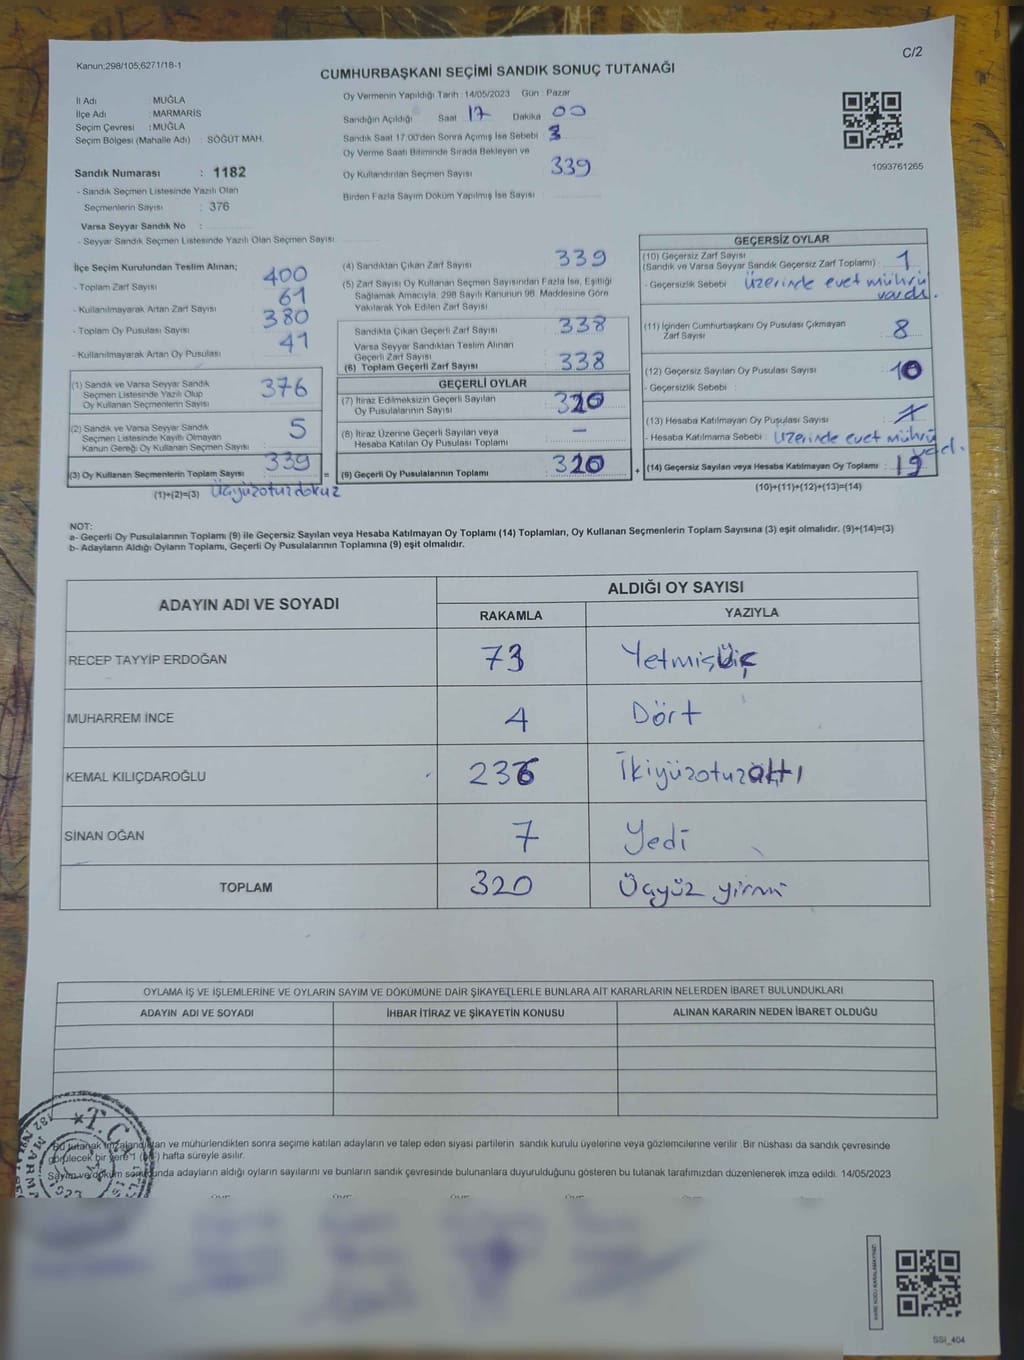 C/2
Kanun;298/105;6271/18-1
CUMHURBAŞKANI SEÇİMİ SANDIK SONUÇ TUTANAĞI
İl Adı MUĞLA
İlçe Adı : MARMARİS
Seçim Çevresi : MUĞLA
Seçim Bölgesi (Mahalle Adı) : SÖĞÜT MAH.
Sandık Numarası : 1182
- Sandık Seçmen Listesinde Yazılı Olan
Seçmenlerin Sayısı : 376
Varsa Seyyar Sandık No :
- Seyyar Sandık Seçmen Listesinde Yazılı Olan Seçmen Sayısı
Oy Vermenin Yapıldığı Tarih : 14/05/2023 Gün : Pazar
Sandığın Açıldığı Saat 17 Dakika 00
Sandık Saat 17:00'den Sonra Açımış İse Sebebi 3
Oy Verme Saati Bitiminde Sırada Bekleyen ve
Oy Kullandırılan Seçmen Sayısı 339
Birden Fazla Sayım Döküm Yapılmış İse Sayısı
1093761265
İlçe Seçim Kurulundan Teslim Alınan;
- Toplam Zarf Sayısı 400
- Kullanılmayarak Artan Zarf Sayısı 61
- Toplam Oy Pusulası Sayısı 380
- Kullanılmayarak Artan Oy Pusulası 41
(1) Sandık ve Varsa Seyyar Sandık
Seçmen Listesinde Yazılı Olup
Oy Kullanan Seçmenlerin Sayısı 376
(2) Sandık ve Varsa Seyyar Sandık
Seçmen Listesinde Kayıtlı Olmayan
Kanun Gereği Oy Kullanan Seçmen Sayısı 5
(3) Oy Kullanan Seçmenlerin Toplam Sayısı 339 =
(1)+(2)=(3) Üçyüzotuzdokuz
(4) Sandıktan Çıkan Zarf Sayısı 339
(5) Zarf Sayısı Oy Kullanan Seçmen Sayısından Fazla İse, Eşitliği
Sağlamak Amacıyla, 298 Sayılı Kanunun 98. Maddesine Göre
Yakılarak Yok Edilen Zarf Sayısı
Sandıkta Çıkan Geçerli Zarf Sayısı 338
Varsa Seyyar Sandıktan Teslim Alınan
Geçerli Zarf Sayısı
(6) Toplam Geçerli Zarf Sayısı 338
GEÇERLİ OYLAR
(7) İtiraz Edilmeksizin Geçerli Sayılan
Oy Pusulalarının Sayısı 320
(8) İtiraz Üzerine Geçerli Sayılan veya
Hesaba Katılan Oy Pusulası Toplamı –
(9) Geçerli Oy Pusulalarının Toplamı 320 +
GEÇERSİZ OYLAR
(10) Geçersiz Zarf Sayısı
(Sandık ve Varsa Seyyar Sandık Geçersiz Zarf Toplamı) : 1
- Geçersizlik Sebebi : Üzerinde evet mührü
vardı.
(11) İçinden Cumhurbaşkanı Oy Pusulası Çıkmayan
Zarf Sayısı 8
(12) Geçersiz Sayılan Oy Pusulası Sayısı 10
- Geçersizlik Sebebi :
(13) Hesaba Katılmayan Oy Pusulası Sayısı
- Hesaba Katılmama Sebebi : Üzerinde evet mührü
vardı.
(14) Geçersiz Sayılan veya Hesaba Katılmayan Oy Toplamı : 19
(10)+(11)+(12)+(13)=(14)
NOT:
a- Geçerli Oy Pusulalarının Toplamı (9) ile Geçersiz Sayılan veya Hesaba Katılmayan Oy Toplamı (14) Toplamları, Oy Kullanan Seçmenlerin Toplam Sayısına (3) eşit olmalıdır. (9)+(14)=(3)
b- Adayların Aldığı Oyların Toplamı, Geçerli Oy Pusulalarının Toplamına (9) eşit olmalıdır.
ADAYIN ADI VE SOYADI ALDIĞI OY SAYISI
RAKAMLA YAZIYLA
RECEP TAYYİP ERDOĞAN 73 Yetmişüç
MUHARREM İNCE 4 Dört
KEMAL KILIÇDAROĞLU 236 İkiyüzotuzaltı
SİNAN OĞAN 7 Yedi
TOPLAM 320 Üçyüz yirmi
OYLAMA İŞ VE İŞLEMLERİNE VE OYLARIN SAYIM VE DÖKÜMÜNE DAİR ŞİKAYETLERLE BUNLARA AİT KARARLARIN NELERDEN İBARET BULUNDUKLARI
ADAYIN ADI VE SOYADI İHBAR İTİRAZ VE ŞİKAYETİN KONUSU ALINAN KARARIN NEDEN İBARET OLDUĞU
Bu tutanak imzalandıktan ve mühürlendikten sonra seçime katılan adayların ve talep eden siyasi partilerin sandık kurulu üyelerine veya gözlemcilerine verilir. Bir nüshası da sandık çevresinde
görülecek bir yere 1 hafta süreyle asılır.
Sayım ve döküm sonunda adayların aldığı oyların sayılarını ve bunların sandık çevresinde bulunanlara duyurulduğunu gösteren bu tutanak tarafımızdan düzenlenerek imza edildi. 14/05/2023
T.C.
SSI_404